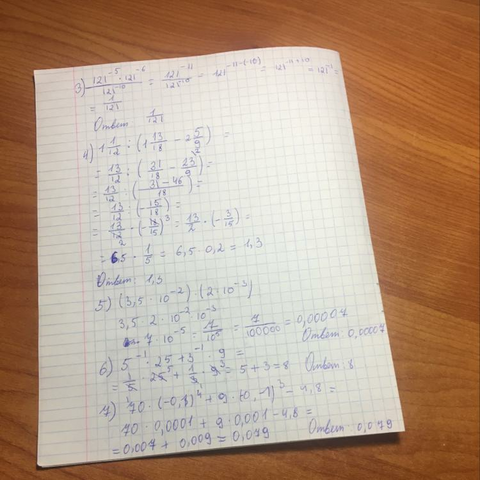 3) 121^-5 · 121^-6 / 121^-10 = 121^-11 / 121^-10 = 121^-11-(-10) = 121^-11+10 = 121^-1 =
= 1/121
Ответ 1/121
4) 1 1/12 : (1 13/18 - 2 5/9) =
= 13/12 : (21/18 - 23/9) =
= 13/12 : (21-46/18) =
= 13/12 : (-15/18) =
= 13/12 · (-18/15) = 13/2 · (-3/15) =
= 6,5 · 1/5 = 6,5 · 0,2 = 1,3
Ответ: 1,3
5) (3,5 · 10^-2) (2 · 10^-3)
3,5 · 2 · 10^-2 · 10^-3
7 · 10^-5 = 7/10^5 = 7/100000 = 0,00007
Ответ 0,00007
6) 5^-1 · 25 + 3^-1 · 9 =
= 1/5 · 25 + 1/3 · 9 = 5 + 3 = 8 Ответ: 8
7) 70 · (-0,1)^4 + 9 · (0,-1)^3 - 4,8 =
70 · 0,0001 + 9 · 0,001 - 4,8 =
= 0,007 + 0,009 = 0,079 Ответ 0,079